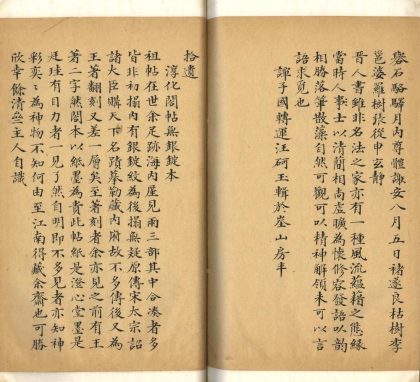 礬石駱驛月內尊體諏安八月五日褚遂良枯樹李
邕婆羅樹張從申玄靜
晉人書雖非名法之家亦有一種風流蘊藉之態緣
當時人士以清簡相尚虛曠為懷修容發語以韻
相勝落筆散藻自然可觀可以精神解領未可以言
語求覓也
諢子國轉運汪砢玉輯於崟山房平
拾遺
淳化閣帖無銀錠本
祖帖在世余足跡海內屋見兩三部其中合湊者多
皆非初搨內有銀錠紋為後搨無疑原傳宋太宗詔
諸大臣購天下名蹟摹勒藏內府故不多傳後又為
王著翻刻又差一層矣至著刻者余亦見之前有王
著二字然閣本以紙墨為貴此帖紙是澄心堂墨是
廷珪有目力者一見了然自明即不多見者亦知神
彩奕〻為神物不知何由至江南得藏余齋也可勝
欣幸餘清齋主人自識